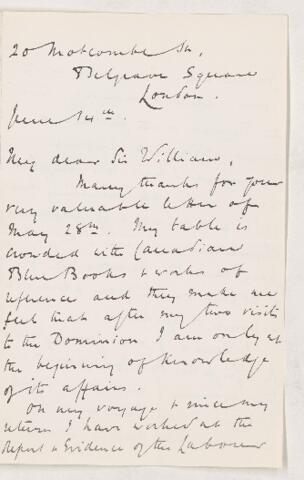 20 Motcombe St,
Belgrave Square
London.
June 14th.
My dear Sir William,
Many thanks for your
very valuable letter of
May 28th. My table is
crowded with Canadian
Blue Books & works of
reference and they make me
feel that after my two visits
to the Dominion I am only at
the beginning of knowledge
of its affairs.
On my voyage & since my
return I have worked at the
Report & Evidence of the Labour